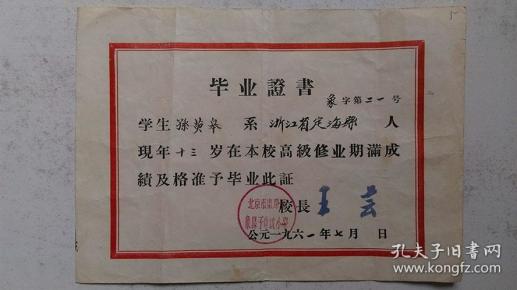 毕业證書
象字第二一号
学生孫黄皋 系 浙江省定海縣 人
現年十三岁在本校高級修业期滿成
績及格准予毕业此証
校長王芸
北京市東單
公元一九六一年七月 日
孔夫子旧書网